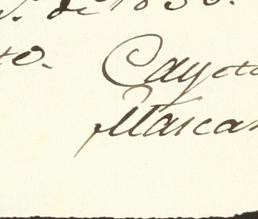 de 1830.
to. Cayeta
Mascar